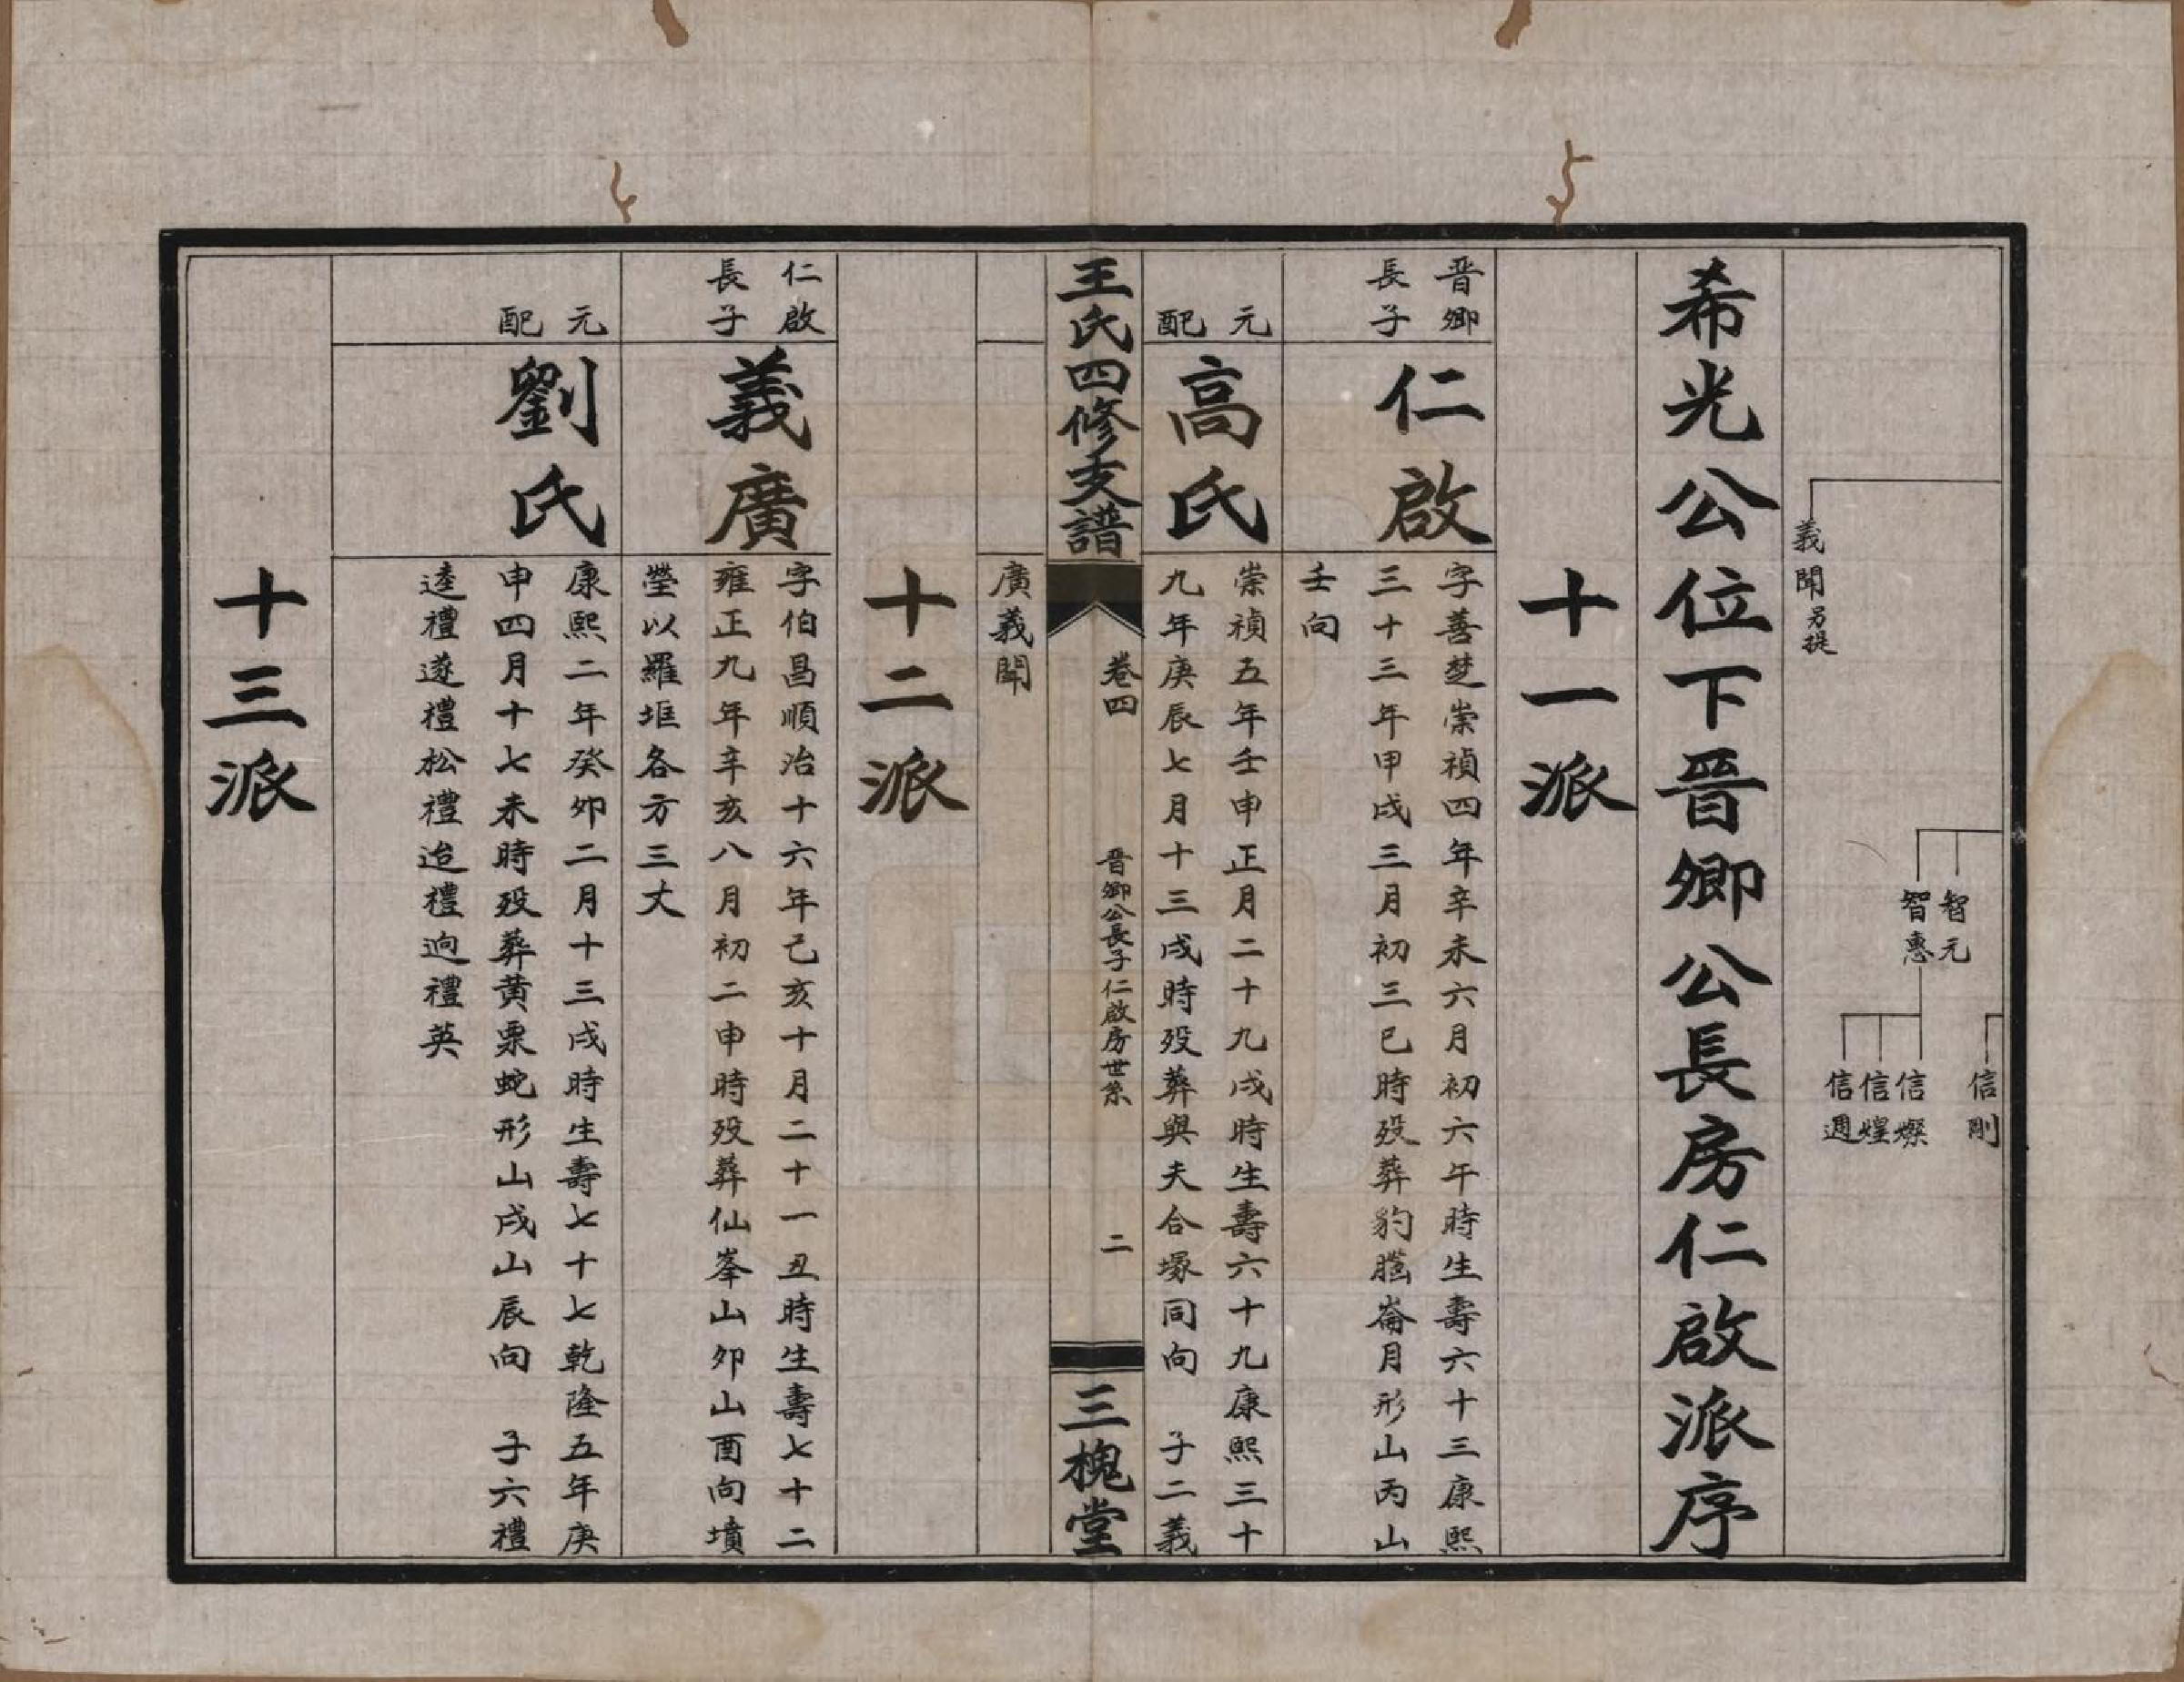 義聞另提
智元
智惠
信剛
信燦
信煌
信週
希光公位下晉卿公長房仁啟派序
十一派
晉卿
長子
仁啟
字善楚崇禎四年辛未六月初六午時生壽六十三康熙
三十三年甲戌三月初三巳時歿葬豹崙月形山丙山
壬向
元
配
高氏
崇禎五年壬申正月二十九戌時生壽六十九康熙三十
九年庚辰七月十三戌時歿葬與夫合塚同向 子二義
王氏四修支譜
卷四
晉卿公長子仁啟房世系
二
三槐堂
廣義聞
十二派
仁啟
長子
義廣
字伯昌順治十六年己亥十月二十一丑時生壽七十二
雍正九年辛亥八月初二申時歿葬仙峯山卯山酉向墳
塋以羅堆各方三丈
元
配
劉氏
康熙二年癸卯二月十三戌時生壽七十七乾隆五年庚
申四月十七未時歿葬黃栗蛇形山戌山辰向 子六禮
逵禮遂禮松禮迨禮逈禮英
十三派